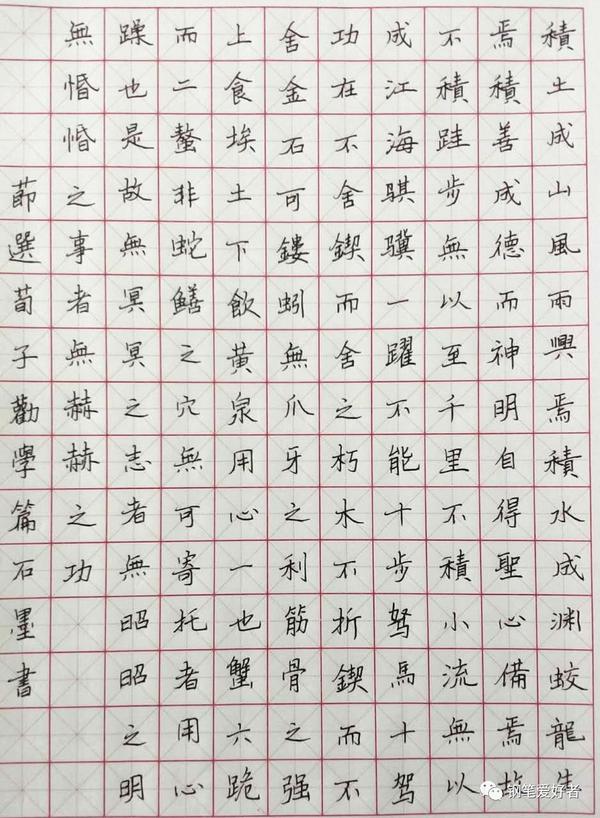 積土成山風雨興焉積水成渊蛟龍生
焉積善成德而神明自得聖心備焉故
不積跬步無以至千里不積小流無以
成江海騏驥一躍不能十步驽馬十驾
功在不舍鍥而舍之朽木不折鍥而不
舍金石可鏤蚓無爪牙之利筋骨之强
上食埃土下飲黄泉用心一也蟹六跪
而二螯非蛇鱔之穴無可寄托者用心
躁也是故無冥冥之志者無昭昭之明
無惛惛之事者無赫赫之功
莭選荀子勸學篇石墨書
钢笔爱好者